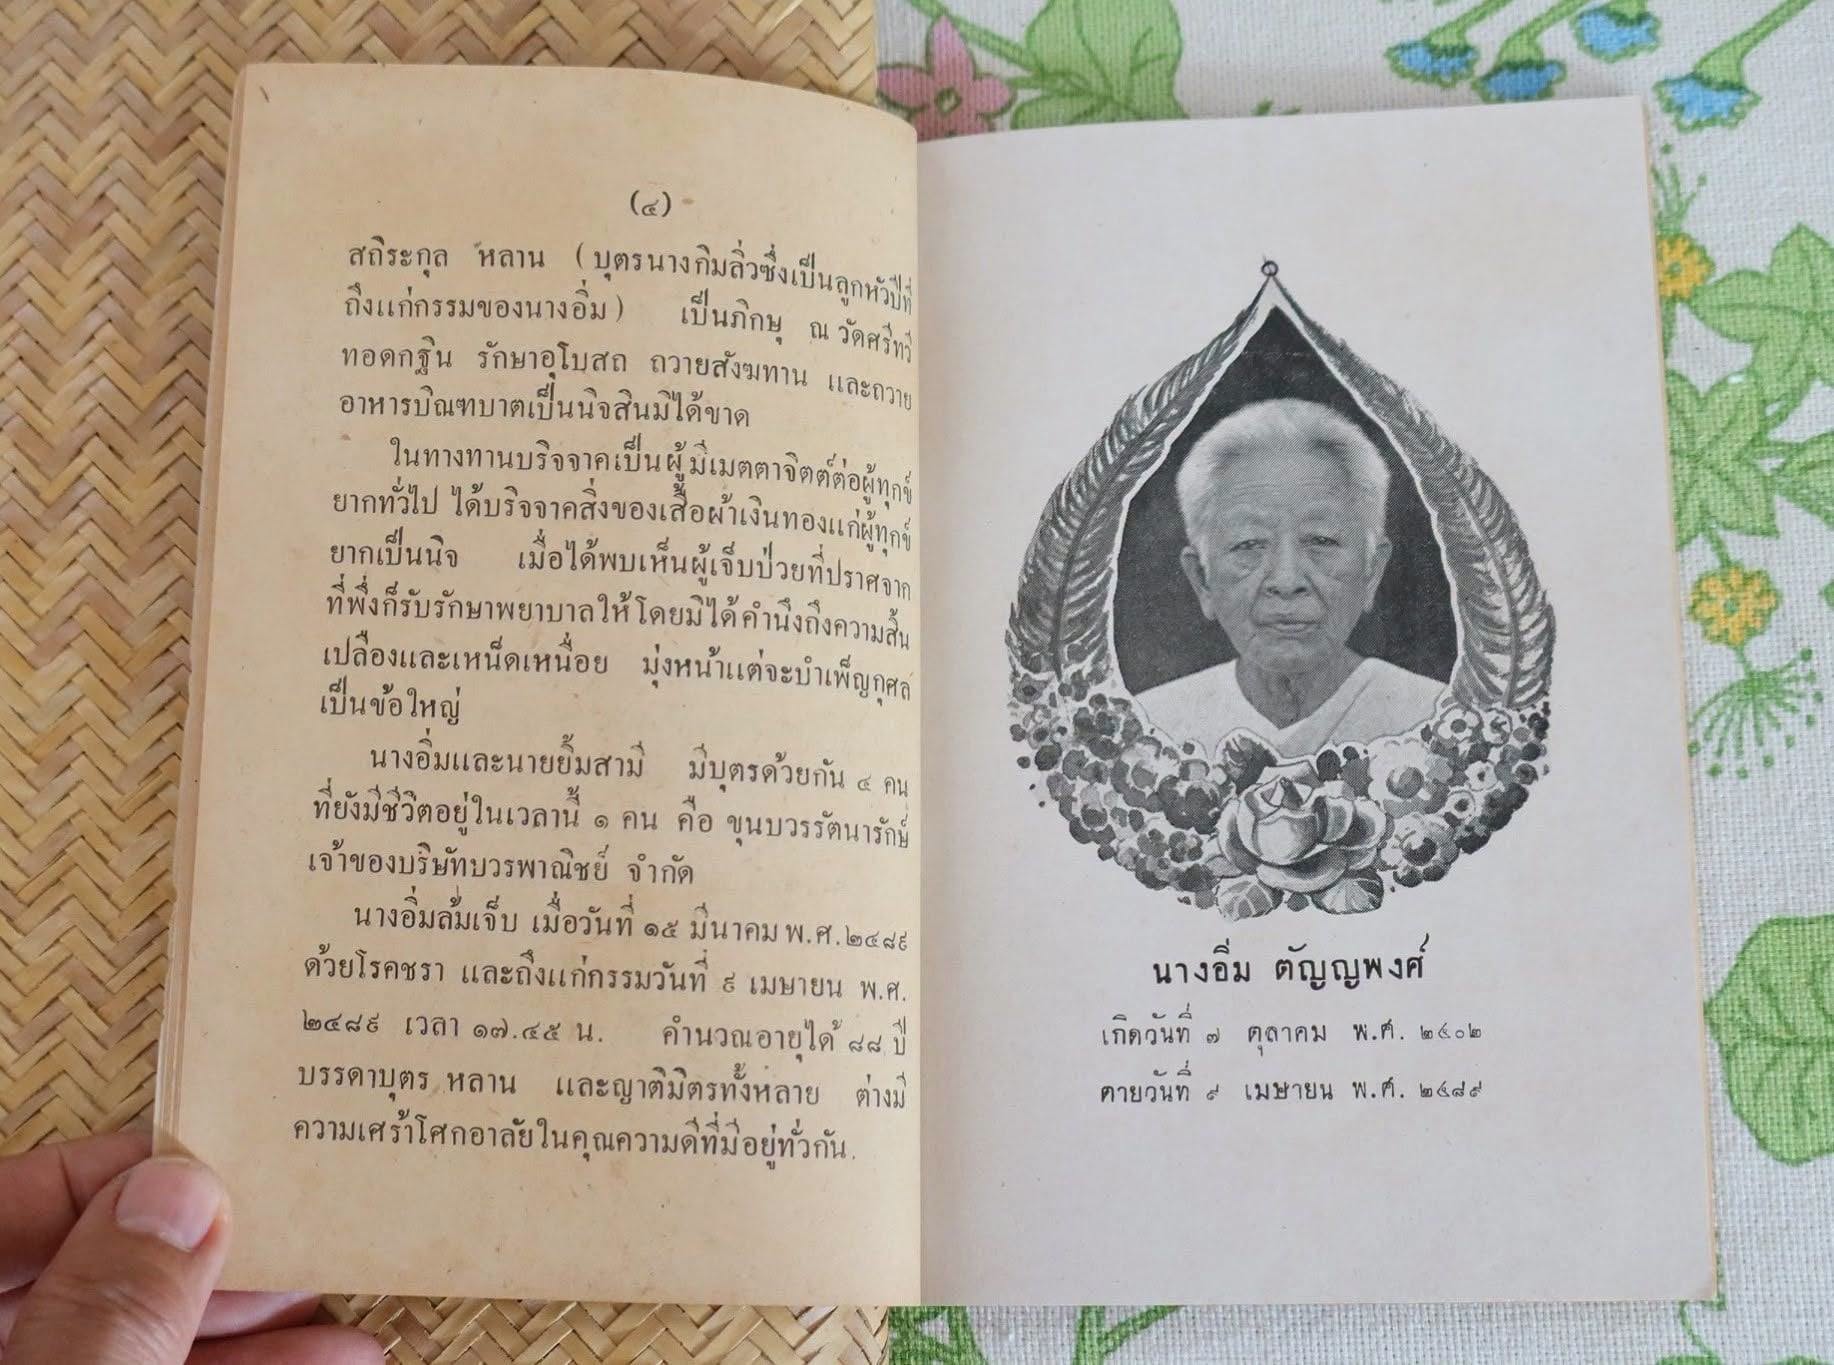 (๔)
สถิระกุล หลาน (บุตรนางกิมลิ่วซึ่งเป็นลูกหัวปีที่
ถึงแก่กรรมของนางอิ่ม) เป็นภิกษุ ณ วัดศรีทวี
ทอดกฐิน รักษาอุโบสถ ถวายสังฆทาน และถวาย
อาหารบิณฑบาตเป็นนิจสินมิได้ขาด
ในทางทานบริจจาคเป็นผู้มีเมตตาจิตต์ต่อผู้ทุกข์
ยากทั่วไป ได้บริจจาคสิ่งของเสื้อผ้าเงินทองแก่ผู้ทุกข์
ยากเป็นนิจ เมื่อได้พบเห็นผู้เจ็บป่วยที่ปราศจาก
ที่พึ่งก็รับรักษาพยาบาลให้โดยมิได้คำนึงถึงความสิ้น
เปลืองและเหน็ดเหนื่อย มุ่งหน้าแต่จะบำเพ็ญกุศล
เป็นข้อใหญ่
นางอิ่มและนายยิ้มสามี มีบุตรด้วยกัน ๔ คน
ที่ยังมีชีวิตอยู่ในเวลานี้ ๑ คน คือ ขุนบวรรัตนารักษ์
เจ้าของบริษัทบวรพาณิชย์ จำกัด
นางอิ่มล้มเจ็บ เมื่อวันที่ ๑๕ มีนาคม พ.ศ.๒๔๘๙
ด้วยโรคชรา และถึงแก่กรรมวันที่ ๙ เมษายน พ.ศ.
๒๔๘๙ เวลา ๑๗.๔๕ น. คำนวณอายุได้ ๘๘ ปี
บรรดาบุตร หลาน และญาติมิตรทั้งหลาย ต่างมี
ความเศร้าโศกอาลัยในคุณความดีที่มีอยู่ทั่วกัน.
นางอิ่ม ตัญญพงศ์
เกิดวันที่ ๗ ตุลาคม พ.ศ. ๒๔๐๒
ตายวันที่ ๙ เมษายน พ.ศ. ๒๔๘๙